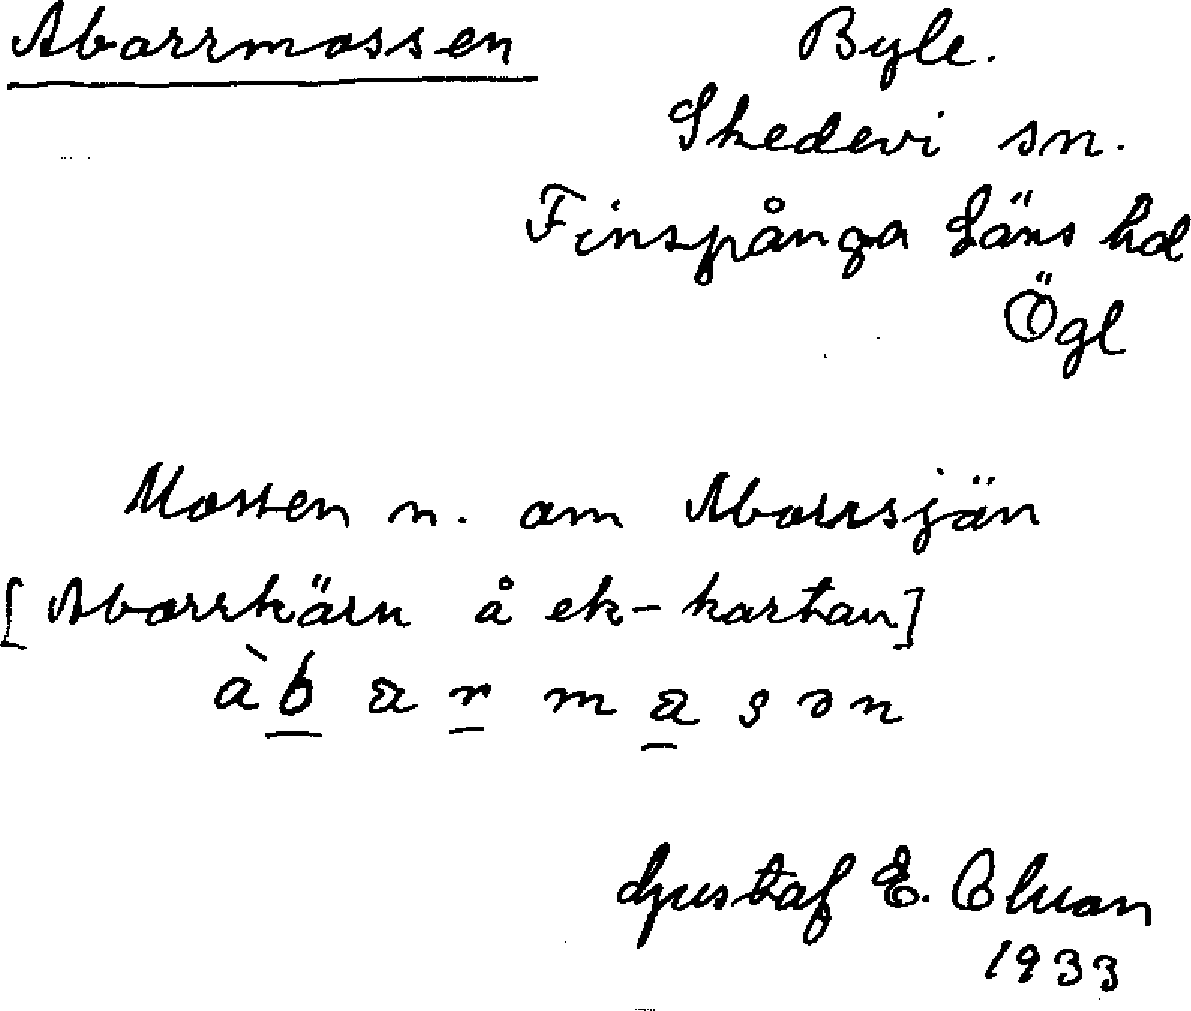 Aborrmossen Byle.
Skedevi sn.
Finspånga Läns hd
Ögl
Mossen n. om Aborrsjön
[Aborrkärn å ek-kartan]
Gustaf E.
1933